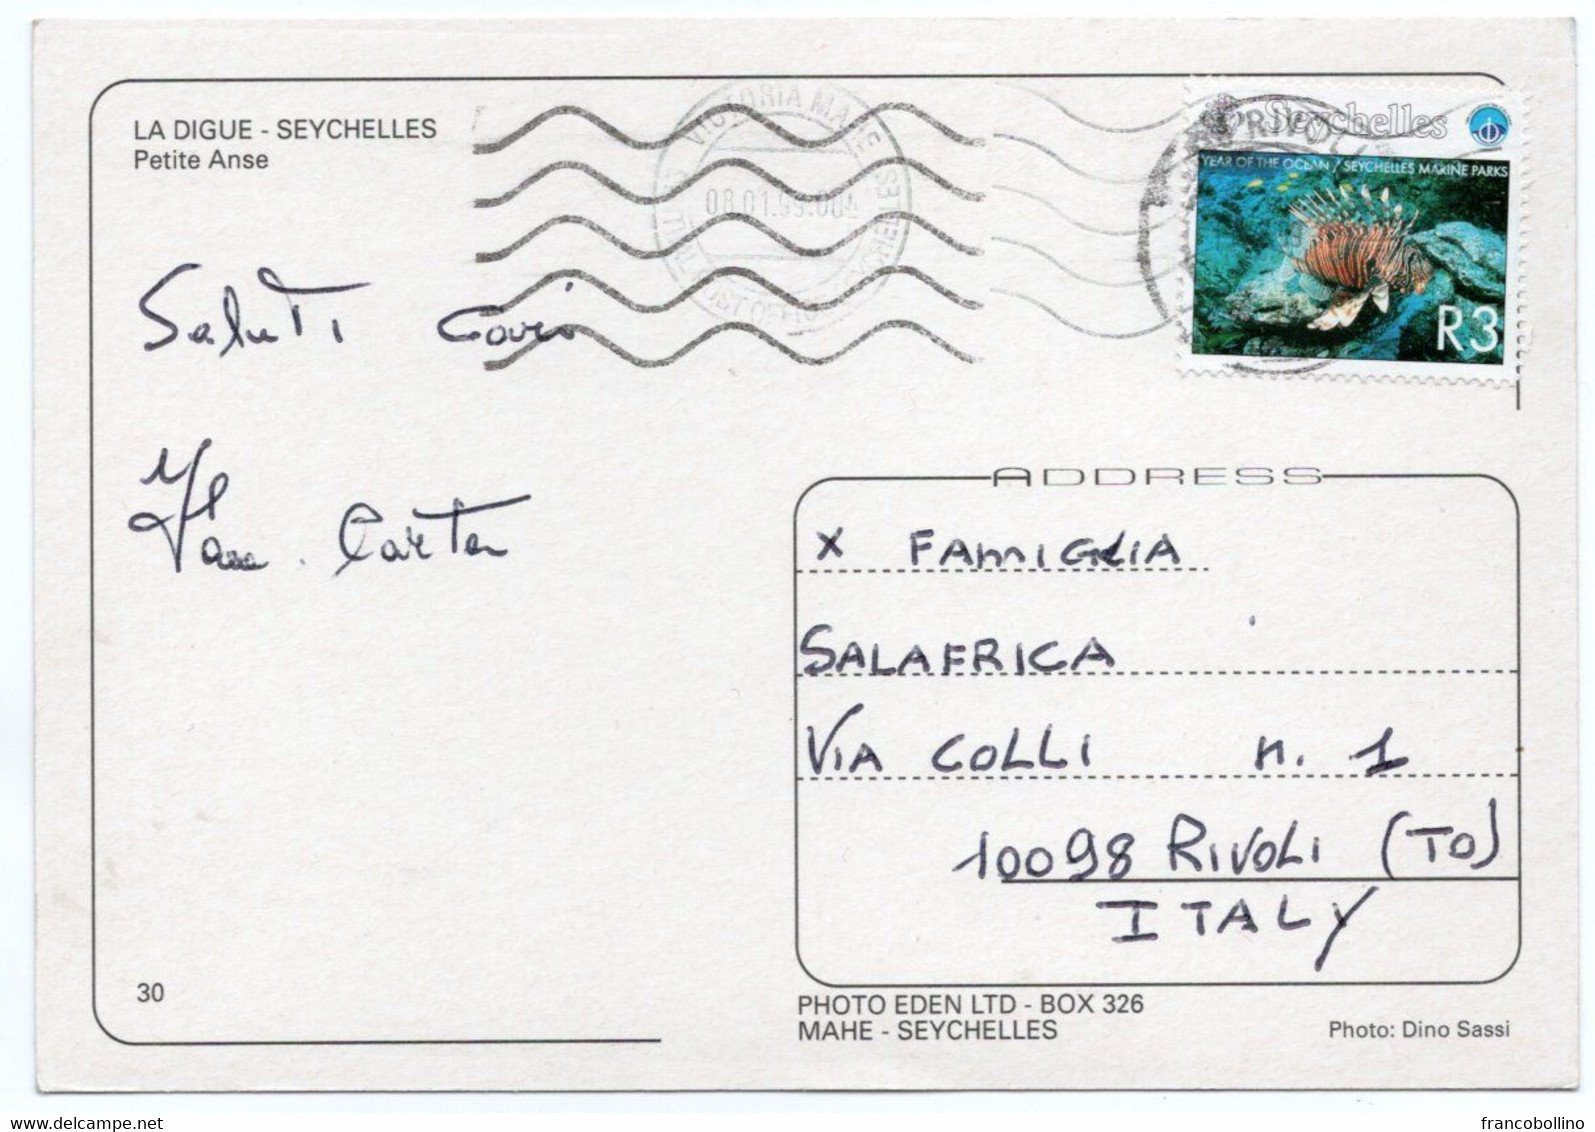 LA DIGUE - SEYCHELLES
Petite Anse
VICTORIA MAHE SEYCHELLES
08.01.99.00
POST OFFICE
Seychelles
YEAR OF THE OCEAN / SEYCHELLES MARINE PARKS
R3
Saluti Cari
ADDRESS
X FAMIGLIA
SALAFRICA
VIA COLLI n. 1
10098 RIVOLI (TO)
ITALY
30
PHOTO EDEN LTD - BOX 326
MAHE - SEYCHELLES
Photo: Dino Sassi
www.delcampe.net
francobollino